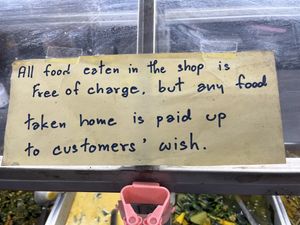 All food eaten in the shop is
Free of charge, but any food
taken home is paid up
to customers' wish.